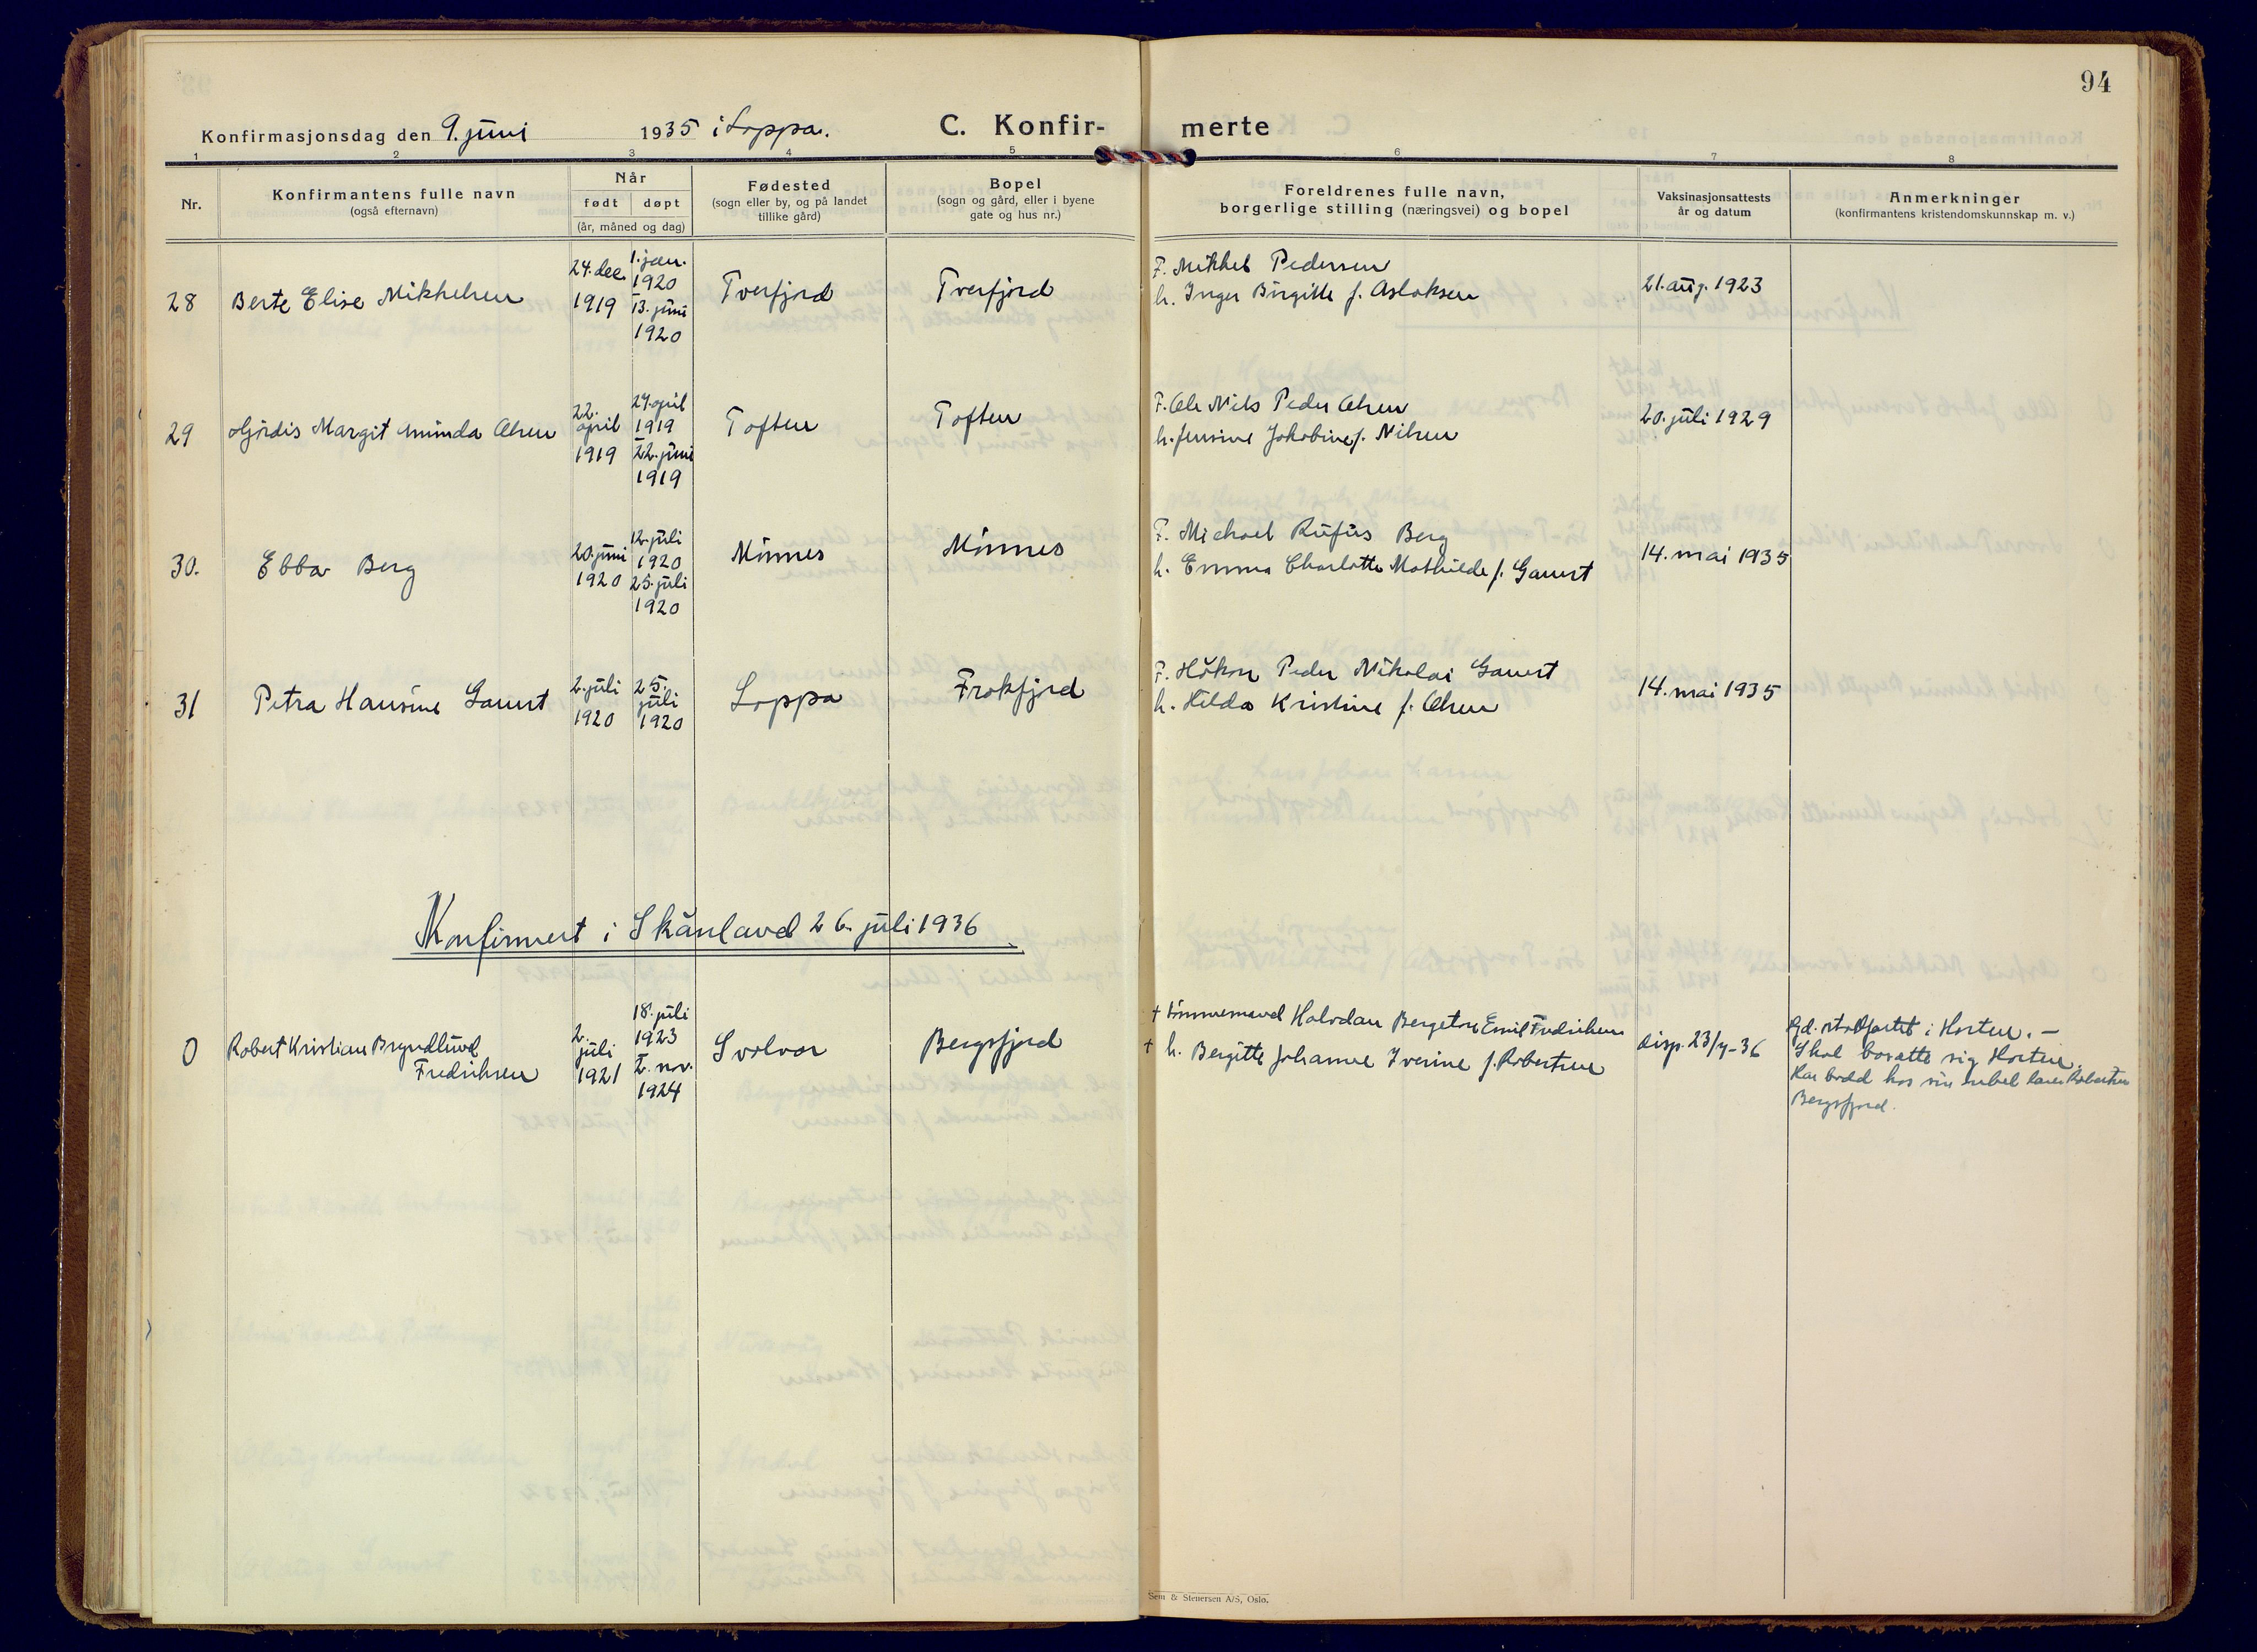 94
Konfirmasjonsdag den 9. juni 1935 i Loppa.
C. Konfir- merte
1 2 3 4 5 6 7 8
Nr.
Konfirmantens fulle navn
(også efternavn)
Når
født døpt
(år, måned og dag)
Fødested
(sogn eller by, og på landet
tillike gård)
Bopel
(sogn og gård, eller i byene
gate og hus nr.)
Foreldrenes fulle navn,
borgerlige stilling (næringsvei) og bopel
Vaksinasjonsattests
år og datum
Anmerkninger
(konfirmantens kristendomskunnskap m. v.)
28
Berte Elise Mikkelsen
24. des.
1919
1. jan.
1920
13. juni
1920
Tverfjord
Tverfjord
F. Mikkel Pedersen
h. Inger Birgitte f. Aslaksen
21. aug. 1923
29
Hjördis Margit Aminda Olsen
22.
april
1919
24. april
1919
22. juni
1919
Toften
Toften
F. Ole Nils Peder Olsen
h. Jensine Jakobine f. Nilsen
20. juli 1929
30.
Ebba Berg
20. juni
1920
12. juli
1920
25. juli
1920
Minnes
Minnes
F. Michael Rufus Berg
h. Emma Charlotte Mathilde f. Gamst
14. mai 1935
31
Petra Hansine Gamst
2. juli
1920
25.
juli
1920
Loppa
Frakfjord
F. Håkon Peder Nikolai Gamst
h. Hilda Kristine f. Olsen
14. mai 1935
Konfirmert i Skånland 26. juli 1936
0
Robert Kristian Bryndlund
Fredriksen
2.
juli
1921
18. juli
1923
2. nov.
1924
Svolvær
Bergsfjord
† Tömmermand Halvdan Bergeton Emil Fredriksen
† h. Bergitte Johanne Iverine f. Robertsen
disp. 23/4-36
i Horten. –
Skal bosætte sig Horten.
Har bodd hos sin onkel Robertsen
Bergsfjord.
Sem & Stenersen A/S, Oslo.